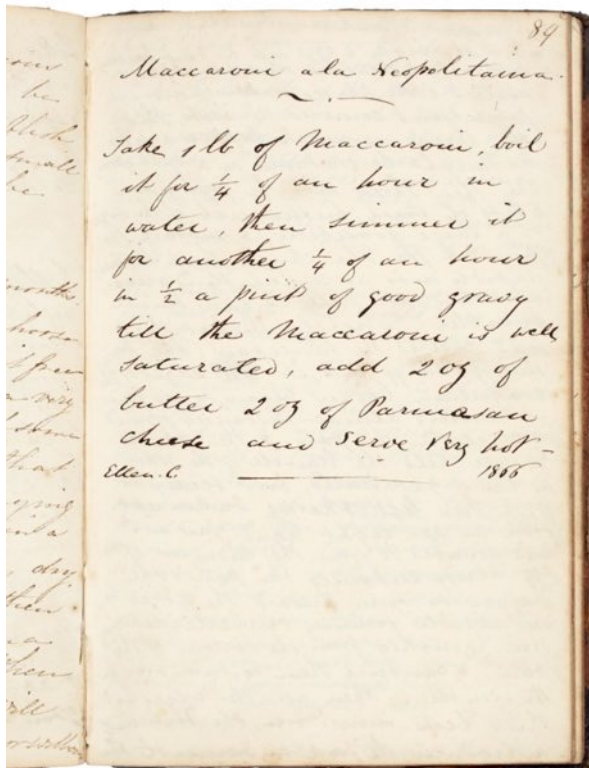 84
Maccaroni a la Neopolitaina.
Take 1 lb of Maccaroni, boil
it for 1/4 of an hour in
water, then simmer it
for another 1/4 of an hour
in 1/2 a pint of good gravy
till the Maccaroni is well
saturated, add 2 oz of
butter 2 oz of Parmasan
cheese and serve very hot -
Ellen. C. 1866
be
small
he
months.
very
some
that
dry
then
a
when
will